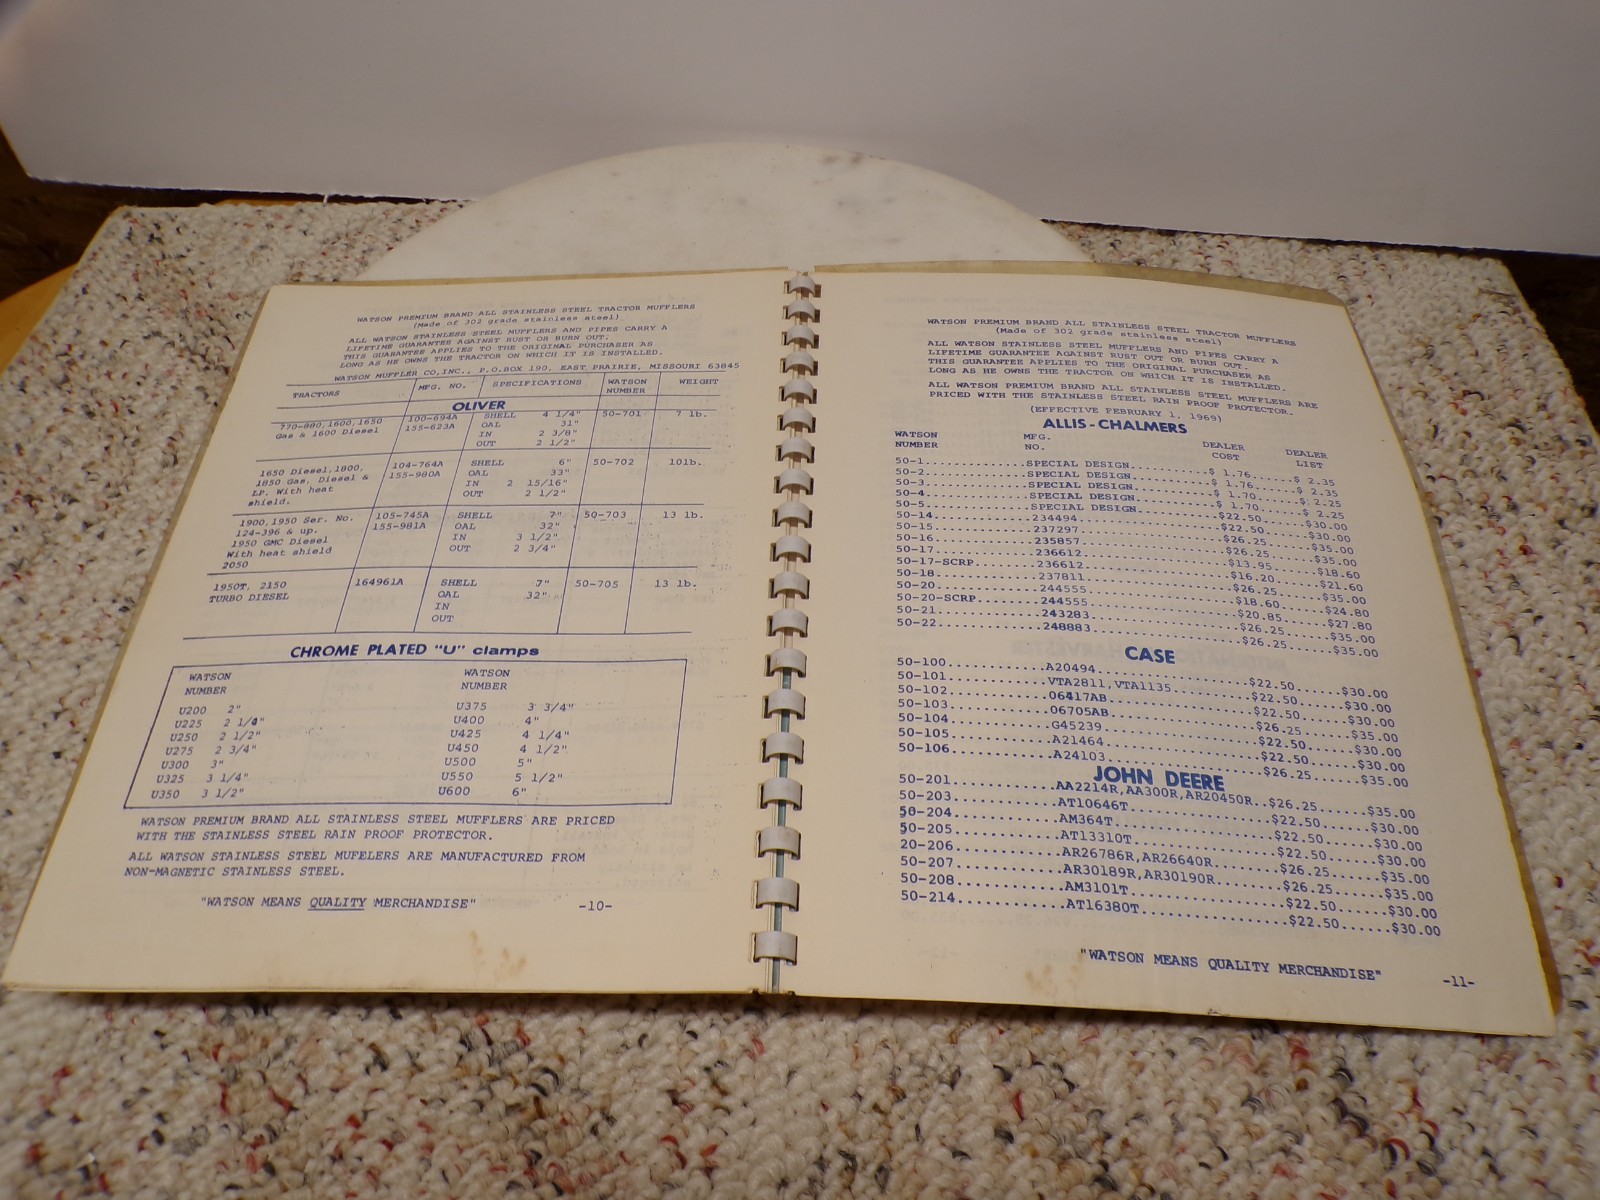 WATSON PREMIUM BRAND ALL STAINLESS STEEL TRACTOR MUFFLERS
(Made of 302 grade stainless steel)
ALL WATSON STAINLESS STEEL MUFFLERS AND PIPES CARRY A
LIFETIME GUARANTEE AGAINST RUST OR BURN OUT.
THIS GUARANTEE APPLIES TO THE ORIGINAL PURCHASER AS
LONG AS HE OWNS THE TRACTOR ON WHICH IT IS INSTALLED.
WATSON MUFFLER CO,INC., P.O.BOX 190, EAST PRAIRIE, MISSOURI 63845
TRACTORS MFG. NO. SPECIFICATIONS WATSON NUMBER WEIGHT
OLIVER
770-880,1600,1650 100-694A SHELL 4 1/4" 50-701 7 lb.
Gas & 1600 Diesel 155-623A OAL 31"
IN 2 3/8"
OUT 2 1/2"
1650 Diesel,1800, 104-764A SHELL 6" 50-702 10lb.
1850 Gas, Diesel & 155-980A OAL 33"
LP. With heat IN 2 15/16"
shield. OUT 2 1/2"
1900,1950 Ser. No. 105-745A SHELL 7" 50-703 13 lb.
124-396 & up. 155-981A OAL 32"
1950 GMC Diesel IN 3 1/2"
With heat shield OUT 2 3/4"
2050
1950T, 2150 164961A SHELL 7" 50-705 13 lb.
TURBO DIESEL OAL 32"
IN
OUT
CHROME PLATED "U" clamps
WATSON WATSON
NUMBER NUMBER
U200 2" U375 3 3/4"
U225 2 1/4" U400 4"
U250 2 1/2" U425 4 1/4"
U275 2 3/4" U450 4 1/2"
U300 3" U500 5"
U325 3 1/4" U550 5 1/2"
U350 3 1/2" U600 6"
WATSON PREMIUM BRAND ALL STAINLESS STEEL MUFFLERS ARE PRICED
WITH THE STAINLESS STEEL RAIN PROOF PROTECTOR.
ALL WATSON STAINLESS STEEL MUFELERS ARE MANUFACTURED FROM
NON-MAGNETIC STAINLESS STEEL.
"WATSON MEANS QUALITY MERCHANDISE" -10-
WATSON PREMIUM BRAND ALL STAINLESS STEEL TRACTOR MUFFLERS
(Made of 302 grade stainless steel)
ALL WATSON STAINLESS STEEL MUFFLERS AND PIPES CARRY A
LIFETIME GUARANTEE AGAINST RUST OUT OR BURN OUT.
THIS GUARANTEE APPLIES TO THE ORIGINAL PURCHASER AS
LONG AS HE OWNS THE TRACTOR ON WHICH IT IS INSTALLED.
ALL WATSON PREMIUM BRAND ALL STAINLESS STEEL MUFFLERS ARE
PRICED WITH THE STAINLESS STEEL RAIN PROOF PROTECTOR.
(EFFECTIVE FEBRUARY 1, 1969)
ALLIS-CHALMERS
WATSON MFG. DEALER DEALER
NUMBER NO. COST LIST
50-1..............SPECIAL DESIGN..........$ 1.76......$ 2.35
50-2..............SPECIAL DESIGN..........$ 1.76......$ 2.35
50-3..............SPECIAL DESIGN..........$ 1.70......$ 2.25
50-4..............SPECIAL DESIGN..........$ 1.70......$ 2.25
50-5..............SPECIAL DESIGN..........$22.50......$30.00
50-14.............234494..................$22.50......$30.00
50-15.............237297..................$26.25......$35.00
50-16.............235857..................$26.25......$35.00
50-17.............236612..................$13.95......$18.60
50-17-SCRP........236612..................$16.20......$21.60
50-18.............237811..................$26.25......$35.00
50-20.............244555..................$18.60......$24.80
50-20-SCRP........244555..................$20.85......$27.80
50-21.............243283..................$26.25......$35.00
50-22.............248883..................$26.25......$35.00
CASE
50-100............A20494..................$22.50......$30.00
50-101............VTA2811,VTA1135.........$22.50......$30.00
50-102............06417AB.................$22.50......$30.00
50-103............06705AB.................$26.25......$35.00
50-104............G45239..................$22.50......$30.00
50-105............A21464..................$22.50......$30.00
50-106............A24103..................$26.25......$35.00
JOHN DEERE
50-201............AA2214R,AA300R,AR20450R..$26.25......$35.00
50-203............AT10646T................$22.50......$30.00
50-204............AM364T..................$22.50......$30.00
50-205............AT13310T................$22.50......$30.00
20-206............AR26786R,AR26640R.......$26.25......$35.00
50-207............AR30189R,AR30190R.......$26.25......$35.00
50-208............AM3101T.................$22.50......$30.00
50-214............AT16380T................$22.50......$30.00
"WATSON MEANS QUALITY MERCHANDISE" -11-